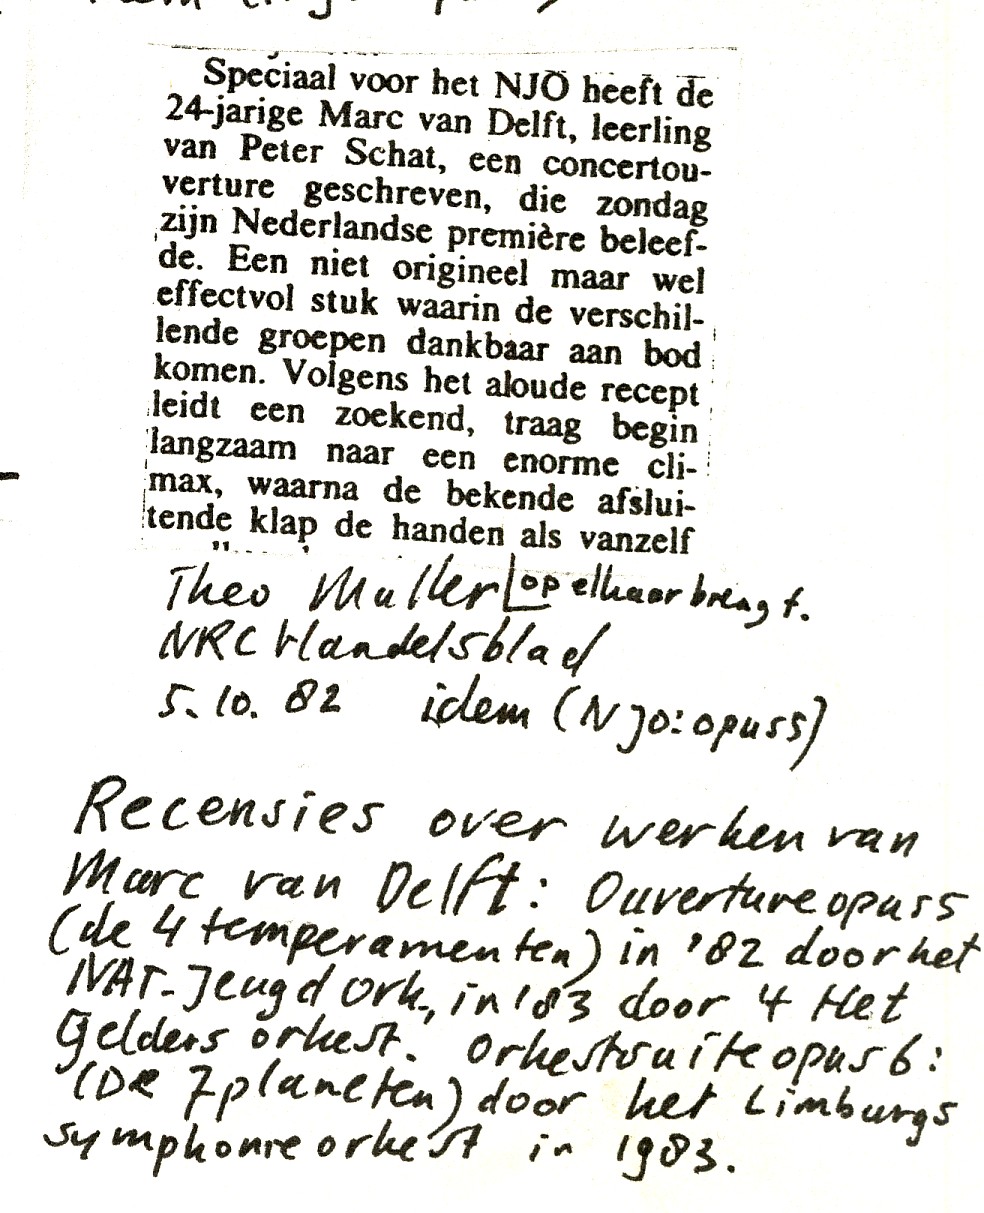 Speciaal voor het NJO heeft de
24-jarige Marc van Delft, leerling
van Peter Schat, een concertou-
verture geschreven, die zondag
zijn Nederlandse première beleef-
de. Een niet origineel maar wel
effectvol stuk waarin de verschil-
lende groepen dankbaar aan bod
komen. Volgens het aloude recept
leidt een zoekend, traag begin
langzaam naar een enorme cli-
max, waarna de bekende afslui-
tende klap de handen als vanzelf
Theo Muller op elkaar brengt.
NRC Handelsblad
5.10.82 idem (NJO: opus 5)
Recensies over werken van
Marc van Delft: Ouverture opus 5
(de 4 temperamenten) in '82 door het
NAT-Jeugd Ork., in '83 door 4 Het
Gelders orkest. Orkestsuite opus 6:
(De 7 planeten) door het Limburgs
symphonie orkest in 1983.